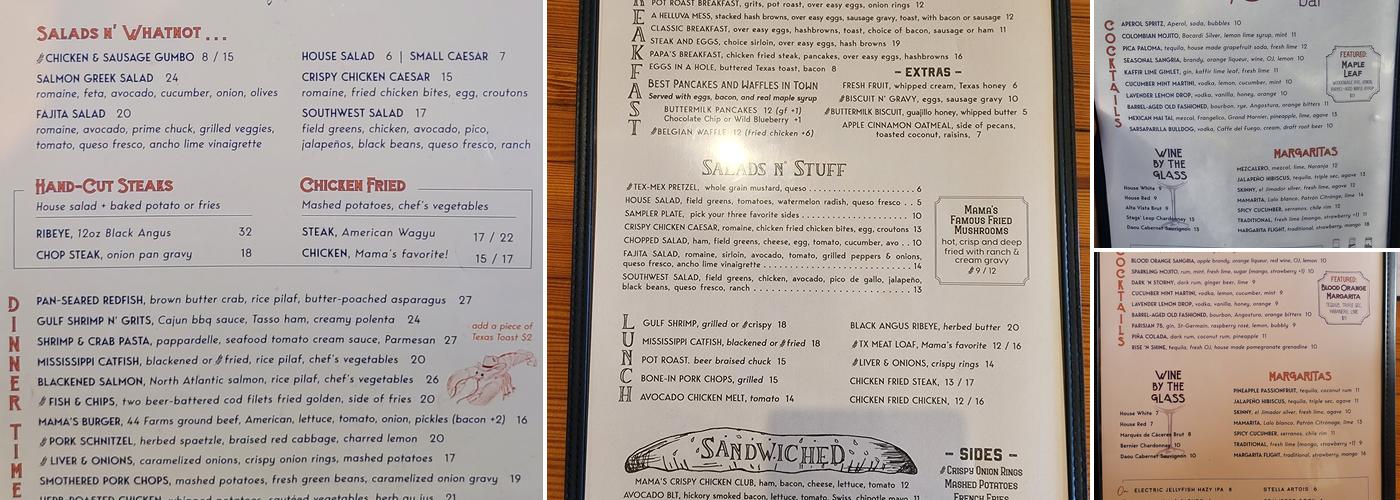 SALADS N' WHATNOT ...
CHICKEN & SAUSAGE GUMBO 8 / 15
SALMON GREEK SALAD 24
romaine, feta, avocado, cucumber, onion, olives
FAJITA SALAD 20
romaine, avocado, prime chuck, grilled veggies,
tomato, queso fresco, ancho lime vinaigrette
HOUSE SALAD 6 | SMALL CAESAR 7
CRISPY CHICKEN CAESAR 15
romaine, fried chicken bites, egg, croutons
SOUTHWEST SALAD 17
field greens, chicken, avocado, pico,
jalapeños, black beans, queso fresco, ranch
HAND-CUT STEAKS
House salad + baked potato or fries
RIBEYE, 12oz Black Angus 32
CHOP STEAK, onion pan gravy 18
CHICKEN FRIED
Mashed potatoes, chef's vegetables
STEAK, American Wagyu 17 / 22
CHICKEN, Mama's favorite! 15 / 17
DINNER TIME
PAN-SEARED REDFISH, brown butter crab, rice pilaf, butter-poached asparagus 27
GULF SHRIMP N' GRITS, Cajun bbq sauce, Tasso ham, creamy polenta 24
SHRIMP & CRAB PASTA, pappardelle, seafood tomato cream sauce, Parmesan 27
MISSISSIPPI CATFISH, blackened or fried, rice pilaf, chef's vegetables 20
BLACKENED SALMON, North Atlantic salmon, rice pilaf, chef's vegetables 26
FISH & CHIPS, two beer-battered cod filets fried golden, side of fries 20
MAMA'S BURGER, 44 Farms ground beef, American, lettuce, tomato, onion, pickles (bacon +2) 16
PORK SCHNITZEL, herbed spaetzle, braised red cabbage, charred lemon 20
LIVER & ONIONS, caramelized onions, crispy onion rings, mashed potatoes 17
SMOTHERED PORK CHOPS, mashed potatoes, fresh green beans, caramelized onion gravy 19
add a piece of
Texas Toast $2
POT ROAST BREAKFAST, grits, pot roast, over easy eggs, onion rings 12
A HELLUVA MESS, stacked hash browns, over easy eggs, sausage gravy, toast, with bacon or sausage 12
CLASSIC BREAKFAST, over easy eggs, hashbrowns, toast, choice of bacon, sausage or ham 11
STEAK AND EGGS, choice sirloin, over easy eggs, hash browns 19
PAPA'S BREAKFAST, chicken fried steak, pancakes, over easy eggs, hashbrowns 16
EGGS IN A HOLE, buttered Texas toast, bacon 8
BEST PANCAKES AND WAFFLES IN TOWN
Served with eggs, bacon, and real maple syrup
BUTTERMILK PANCAKES 12 (gf +1)
Chocolate Chip or Wild Blueberry +1
BELGIAN WAFFLE 12 (fried chicken +6)
- EXTRAS -
FRESH FRUIT, whipped cream, Texas honey 6
BISCUIT N' GRAVY, eggs, sausage gravy 10
BUTTERMILK BISCUIT, guajillo honey, whipped butter 5
APPLE CINNAMON OATMEAL, side of pecans,
toasted coconut, raisins, 7
SALADS N' STUFF
TEX-MEX PRETZEL, whole grain mustard, queso 6
HOUSE SALAD, field greens, tomatoes, watermelon radish, queso fresco . . 5
SAMPLER PLATE, pick your three favorite sides 10
CRISPY CHICKEN CAESAR, romaine, chicken fried chicken bites, egg, croutons 13
CHOPPED SALAD, ham, field greens, cheese, egg, tomato, cucumber, avo . . 10
FAJITA SALAD, romaine, avocado, tomato, grilled peppers & onions,
queso fresco, ancho lime vinaigrette 14
SOUTHWEST SALAD, field greens, chicken, avocado, pico de gallo, jalapeño,
black beans, queso fresco, ranch 13
MAMA'S
FAMOUS FRIED
MUSHROOMS
hot, crisp and deep
fried with ranch &
cream gravy
9 / 12
LUNCH
GULF SHRIMP, grilled or crispy 18
MISSISSIPPI CATFISH, blackened or fried 18
POT ROAST, beer braised chuck 15
BONE-IN PORK CHOPS, grilled 15
AVOCADO CHICKEN MELT, tomato 14
BLACK ANGUS RIBEYE, herbed butter 20
TX MEAT LOAF, Mama's favorite 12 / 16
LIVER & ONIONS, crispy rings 14
CHICKEN FRIED STEAK, 13 / 17
CHICKEN FRIED CHICKEN, 12 / 16
SANDWICHED
MAMA'S CRISPY CHICKEN CLUB, ham, bacon, cheese, lettuce, tomato 12
AVOCADO BLT, hickory smoked bacon, lettuce, tomato, Swiss, chipotle mayo 11
- SIDES -
CRISPY ONION RINGS
MASHED POTATOES
FRENCH FRIES
bar
COCKTAILS
APEROL SPRITZ, Aperol, soda, bubbles 10
COLOMBIAN MOJITO, Bacardi Silver, lemon lime syrup, mint 11
PICA PALOMA, tequila, house made grapefruit soda, fresh lime 12
SEASONAL SANGRIA, brandy, orange liqueur, wine, OJ, lemon 10
KAFFIR LIME GIMLET, gin, kaffir lime leaf, fresh lime 11
CUCUMBER MINT MARTINI, vodka, lemon, cucumber, mint 10
LAVENDER LEMON DROP, vodka, vanilla, honey, orange 10
BARREL-AGED OLD FASHIONED, bourbon, rye, Angostura, orange bitters 11
MEXICAN MAI TAI, mezcal, frangelico, Grand Marnier, pineapple, lime, agave 13
SARSAPARILLA BULLDOG, vodka, Caffe del Fuego, cream, draft root beer 10
FEATURED:
MAPLE
LEAF
WINE
BY THE
GLASS
House White 9
House Red 9
Alta Vista Brut 9
Stags' Leap Chardonnay 15
Daou Cabernet Sauvignon 13
MARGARITAS
MEZCALERO, mezcal, lime, Naranja 12
JALAPEÑO HIBISCUS, tequila, triple sec, agave 13
SKINNY, el Jimador silver, fresh lime, agave 12
MAMARITA, Lalo blanco, Patrón Citrónge, lime 14
SPICY CUCUMBER, serranos, chile rim 12
TRADITIONAL, fresh lime (mango, strawberry +1) 11
MARGARITA FLIGHT, traditional, strawberry, mango 18
COCKTAILS
BLOOD ORANGE SANGRIA, apple brandy, orange liqueur, red wine, OJ, lemon 10
SPARKLING MOJITO, rum, mint, fresh lime, sugar (mango, strawberry +1) 10
DARK N' STORMY, dark rum, ginger beer, lime 9
CUCUMBER MINT MARTINI, vodka, lemon, cucumber, mint 9
LAVENDER LEMON DROP, vodka, vanilla, honey, orange 9
BARREL-AGED OLD FASHIONED, bourbon, Angostura, orange bitters 10
PARISIAN 75, gin, St-Germain, raspberry rosé, lemon, bubbly 9
PIÑA COLADA, dark rum, coconut rum, pineapple 11
RISE 'N SHINE, tequila, fresh OJ, house made pomegranate grenadine 10
FEATURED:
BLOOD ORANGE
MARGARITA
WINE
BY THE
GLASS
House White 7
House Red 7
Marqués de Cáceres Brut 8
Bernier Chardonnay 10
Daou Cabernet Sauvignon 10
MARGARITAS
PINEAPPLE PASSIONFRUIT, tequila, coconut rum 11
JALAPEÑO HIBISCUS, tequila, triple sec, agave 11
SKINNY, el Jimador silver, fresh lime, agave 10
MAMARITA, Lalo blanco, Patrón Citrónge, lime 13
SPICY CUCUMBER, serranos, chile rim 11
TRADITIONAL, fresh lime (mango, strawberry +1) 9
MARGARITA FLIGHT, traditional, strawberry, mango 16
On ELECTRIC JELLYFISH HAZY IPA 8
STELLA ARTOIS 6